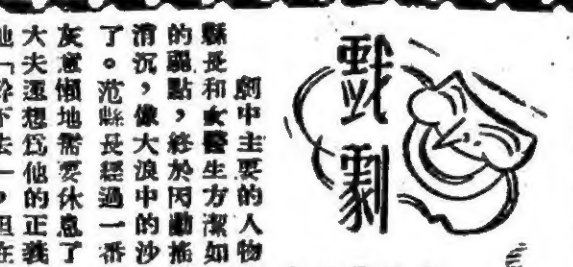 戲劇
劇中主要的人物
縣長和女醫生方潔如
的龎點，終於因動搖
消沉，像大浪中的沙
了。范縣長經過一番
灰意懶地需要休息了
大夫還想爲他的正義
「幹不去一，但在